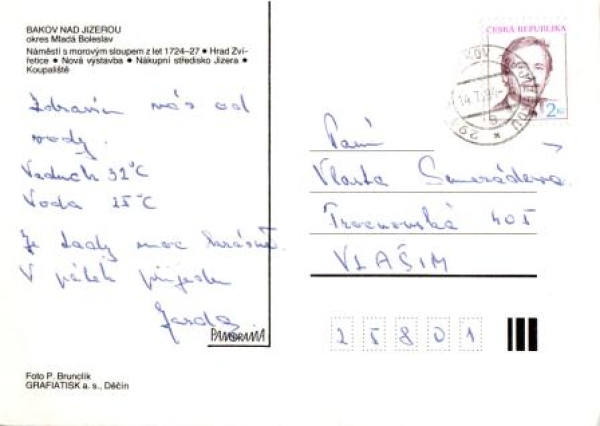 BAKOV NAD JIZEROU
okres Mladá Boleslav
Náměstí s morovým sloupem z let 1724–27 ● Hrad Zví-
řetice ● Nová výstavba ● Nákupní středisko Jizera ●
Koupaliště
Zdravím vás od
vody.
Vzduch 32°C
Voda 25°C
Je tady moc krásně.
V pátek přijedu
Jarda
PANORAMA
Foto P. Brunclík
GRAFIATISK a. s., Děčín
ČESKÁ REPUBLIKA
2 Kč
14.7.
Paní
Vlasta
Trocnovská 405
VLAŠIM
25801